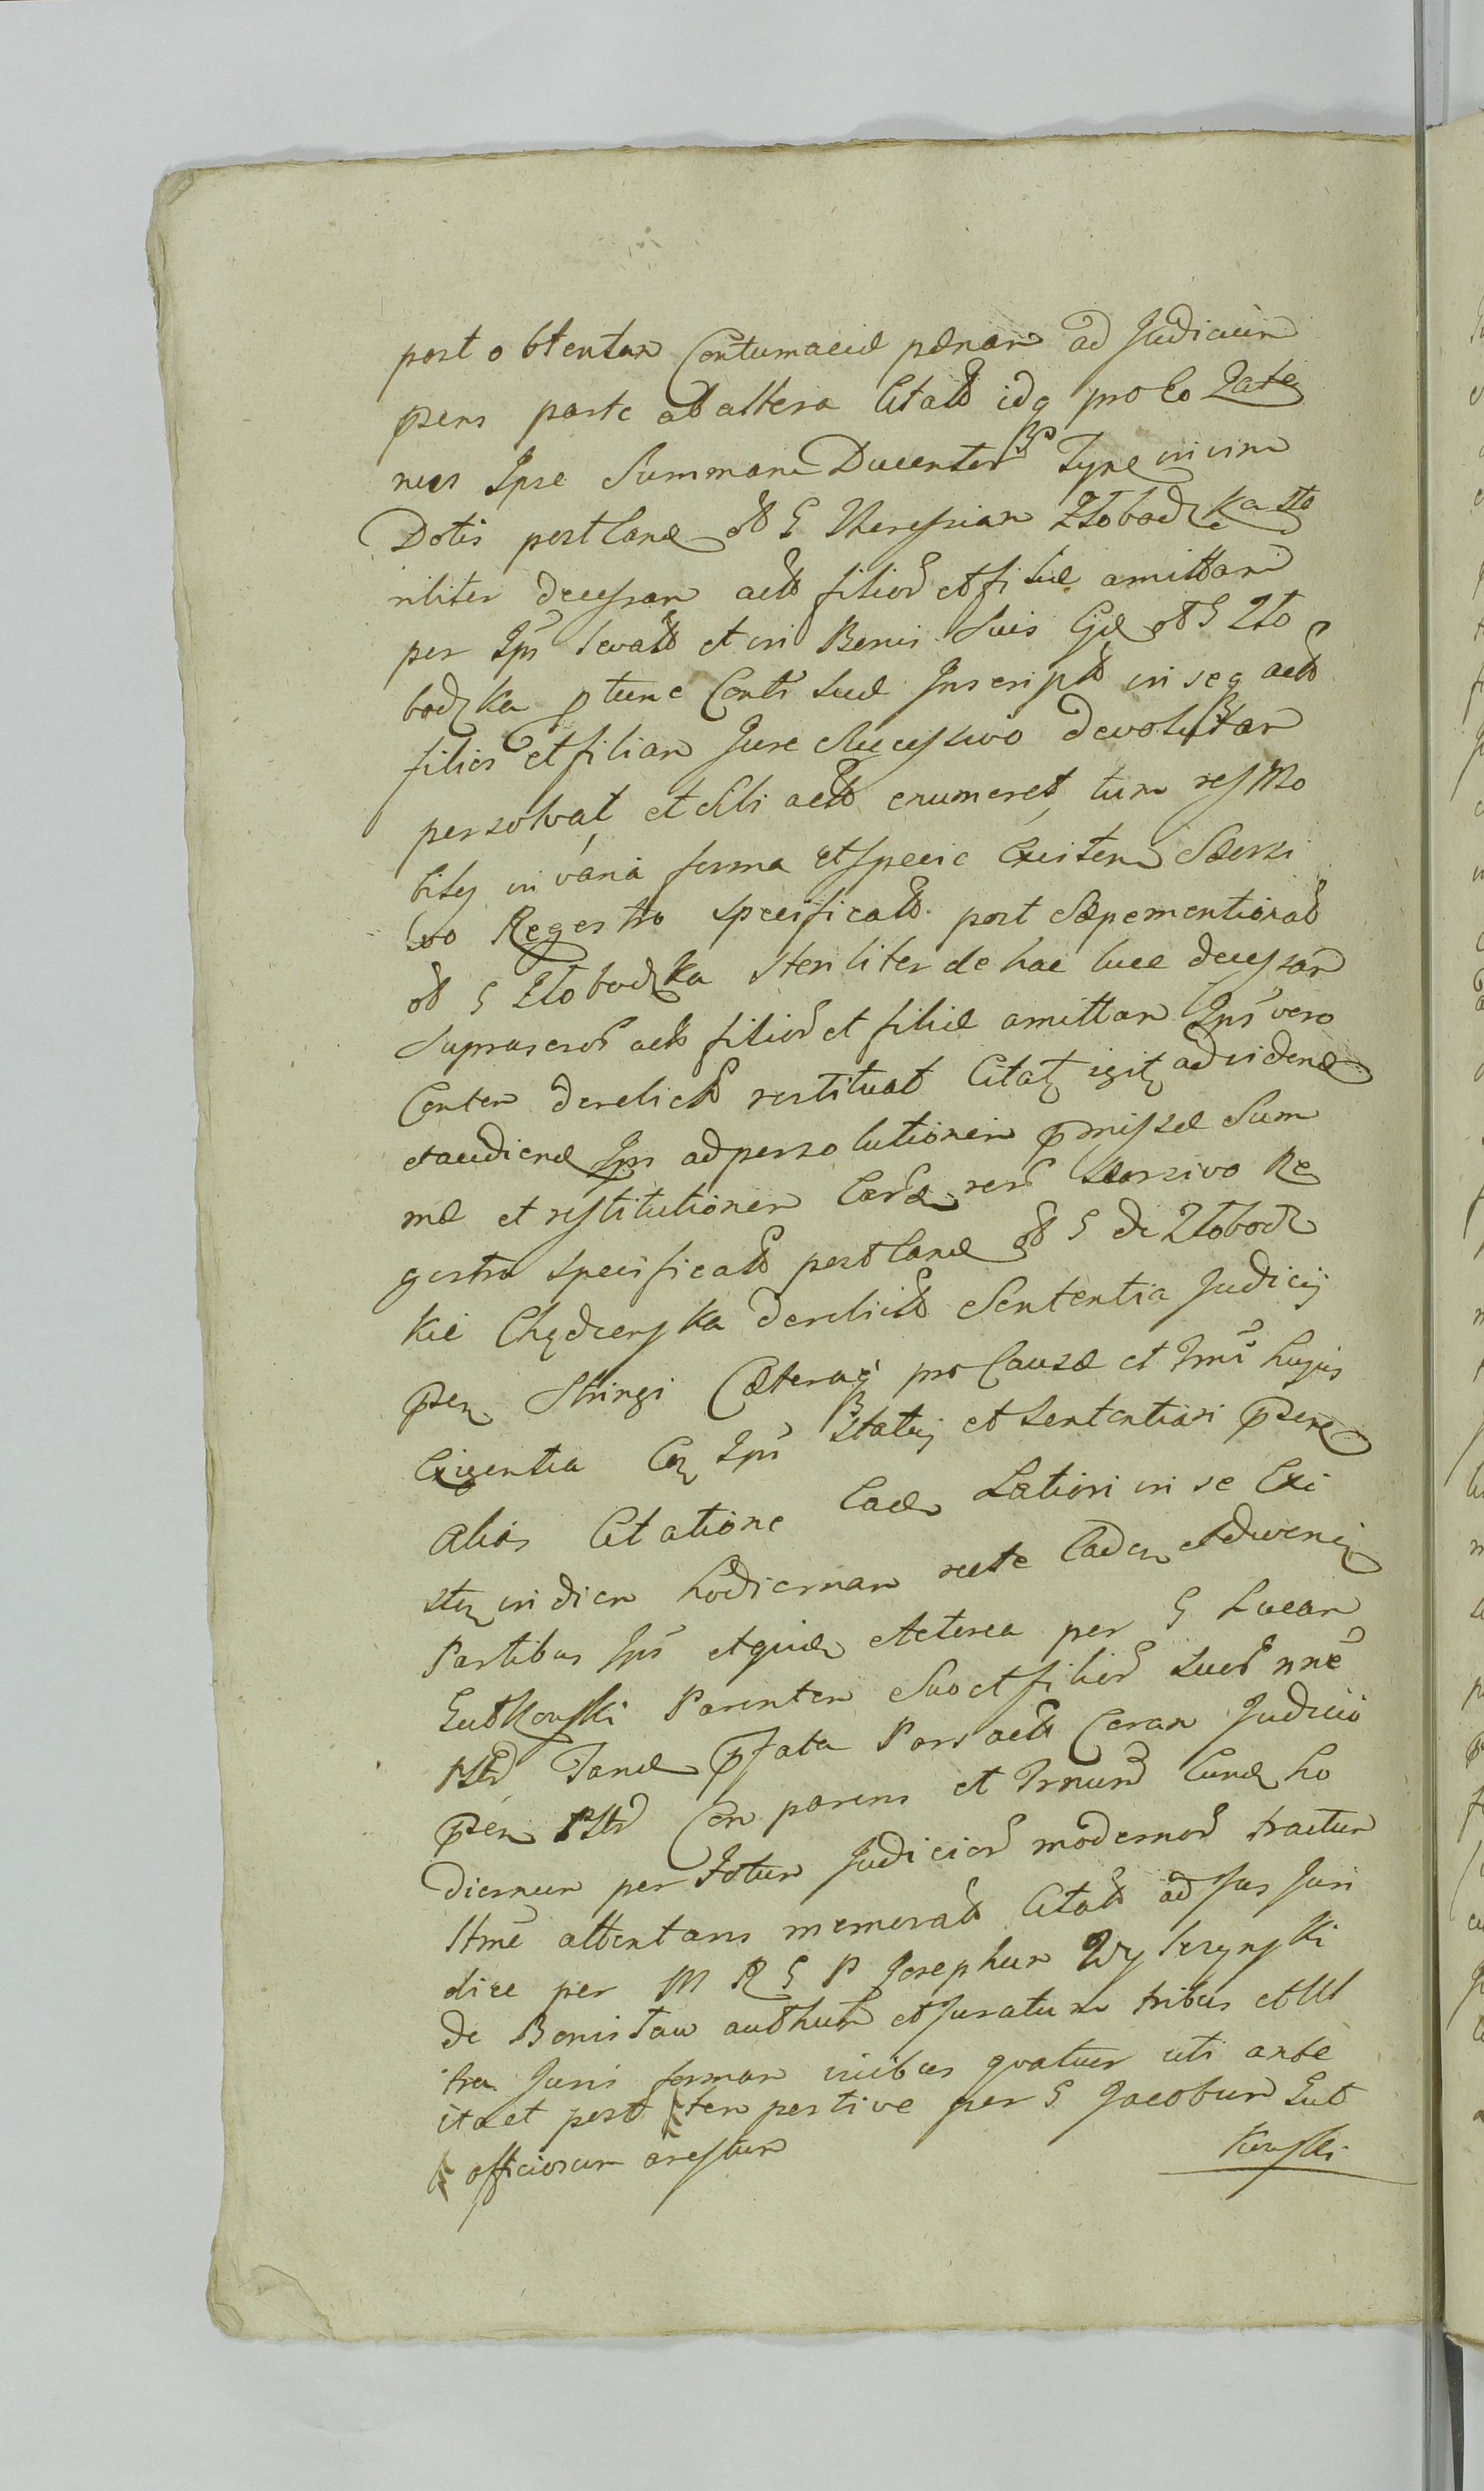 post obtentam Contumaciæ pænam ad Judicium
præns parte ab altera Citatt idq pro eo Quate
nus Ipse Summam Ducentor Tynf in vim
Dotis post Eand ol G Theressiam Złobodzka ste
riliter decessam actt filior et filiæ amittam
per Ips levatt et in Bonis Suis Ejd ol G Zło
bodzka p tunc Conti suæ Inscriptt in seq actt
filios et filiam Jure Successivo devolutam
persolvat et Sibi actt enumeret, tum res Mo
biles in varia forma et specie Existen Seorsi
vo Regestro specificatt post Sæpementionatt
ol G Złobodzka steriliter de hac luce decessam
Suprascr actt filior et filiæ amittam Ips vero
Conten derelictt restituat Citat igit ad vidend
et audiend Ips ad persolutionem præmissæ Sum
mæ et restitutionem Eard rer Seorsivo Re
gestro specificatt post Eand ol G de Złobodz
kie Chądzeńska derelictt Sententia Judicij
præn Stringi Cæteraq pro Causæ et Trni hujus
Exigentia Cq Ips Statuj et Sententiari præne
alias Citatione Ead Latiori in se Exi
sten in diem hodiernam recte Caden Adveni
Partibus Ips etquid Acterea per G Lucam
Gutkowski Parentem Suo et filior suor nne
pltr Tand præfata Pars actt Coram Judicio
præn pltr Comparens et Trnum Eund ho
diernum per totum Judicior modernor tractum
ltme attentans memoratt Citatt ad Jus Juri
dice per M R G P Josephum Wyleżyński
de Bonisław authum et Juratum tribus et Ul
tra Juris formam vicibus quatuor uti ante
ita et post tempestive per G Jacobum Gut
officiosum arestum kowski